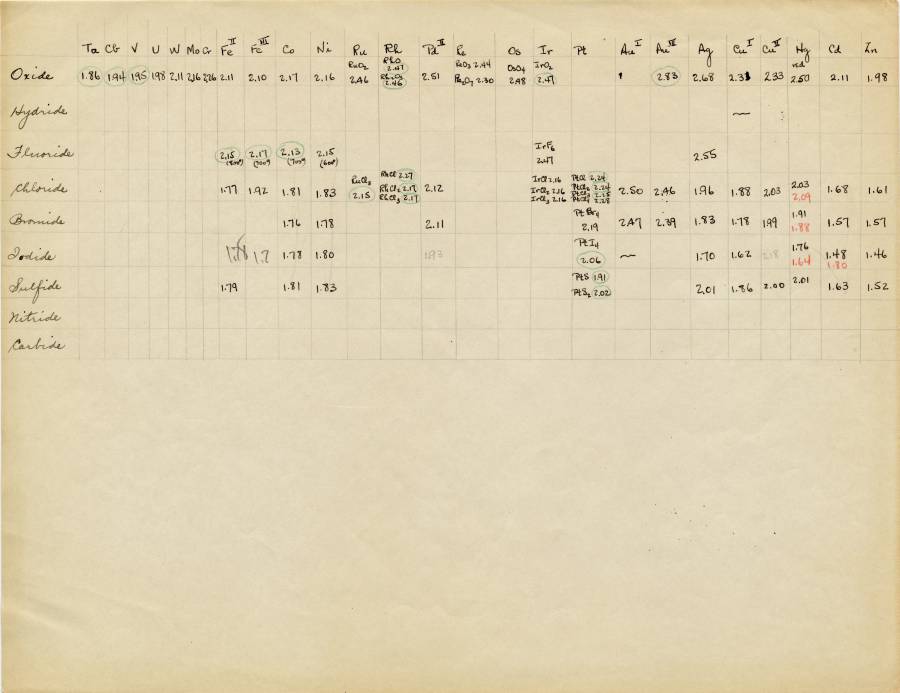 Ta Cb V U W Mo Cr Fe II Fe III Co Ni Ru Rh Pd II Re Os Ir Pt Au I Au III Ag Cu I Cu II Hg Cd Zn
Oxide 1.86 1.94 1.95 1.98 2.11 2.16 2.26 2.11 2.10 2.17 2.16 RuO2 2.46 RhO 2.47 Rh2O3 2.46 2.51 ReO3 2.44 Re2O7 2.30 OsO4 2.48 IrO2 2.47 2.83 2.68 2.33 red 2.50 2.11 1.98
Hydride ~
Fluoride 2.15 2.17 2.13 2.15 IrF6 2.47 2.55
(700°)
Chloride 1.77 1.92 1.81 1.83 RuCl3 2.15 RhCl 2.27 RhCl2 2.17 RhCl3 2.17 2.12 IrCl 2.16 IrCl2 2.16 IrCl3 2.16 PtCl 2.24 PtCl2 2.24 PtCl3 2.25 PtCl4 2.28 2.50 2.46 1.96 1.88 2.03 2.03 2.09 1.68 1.61
Bromide 1.76 1.78 2.11 PtBr4 2.19 2.47 2.39 1.83 1.78 1.99 1.91 1.88 1.57 1.57
Iodide 1.78 1.7 1.78 1.80 1.93 PtI4 2.06 ~ 1.70 1.62 2.18 1.76 1.64 1.48 1.80 1.46
Sulfide 1.79 1.81 1.83 PtS 1.91 PtS2 2.02 2.01 1.86 2.00 2.01 1.63 1.52
Nitride
Carbide